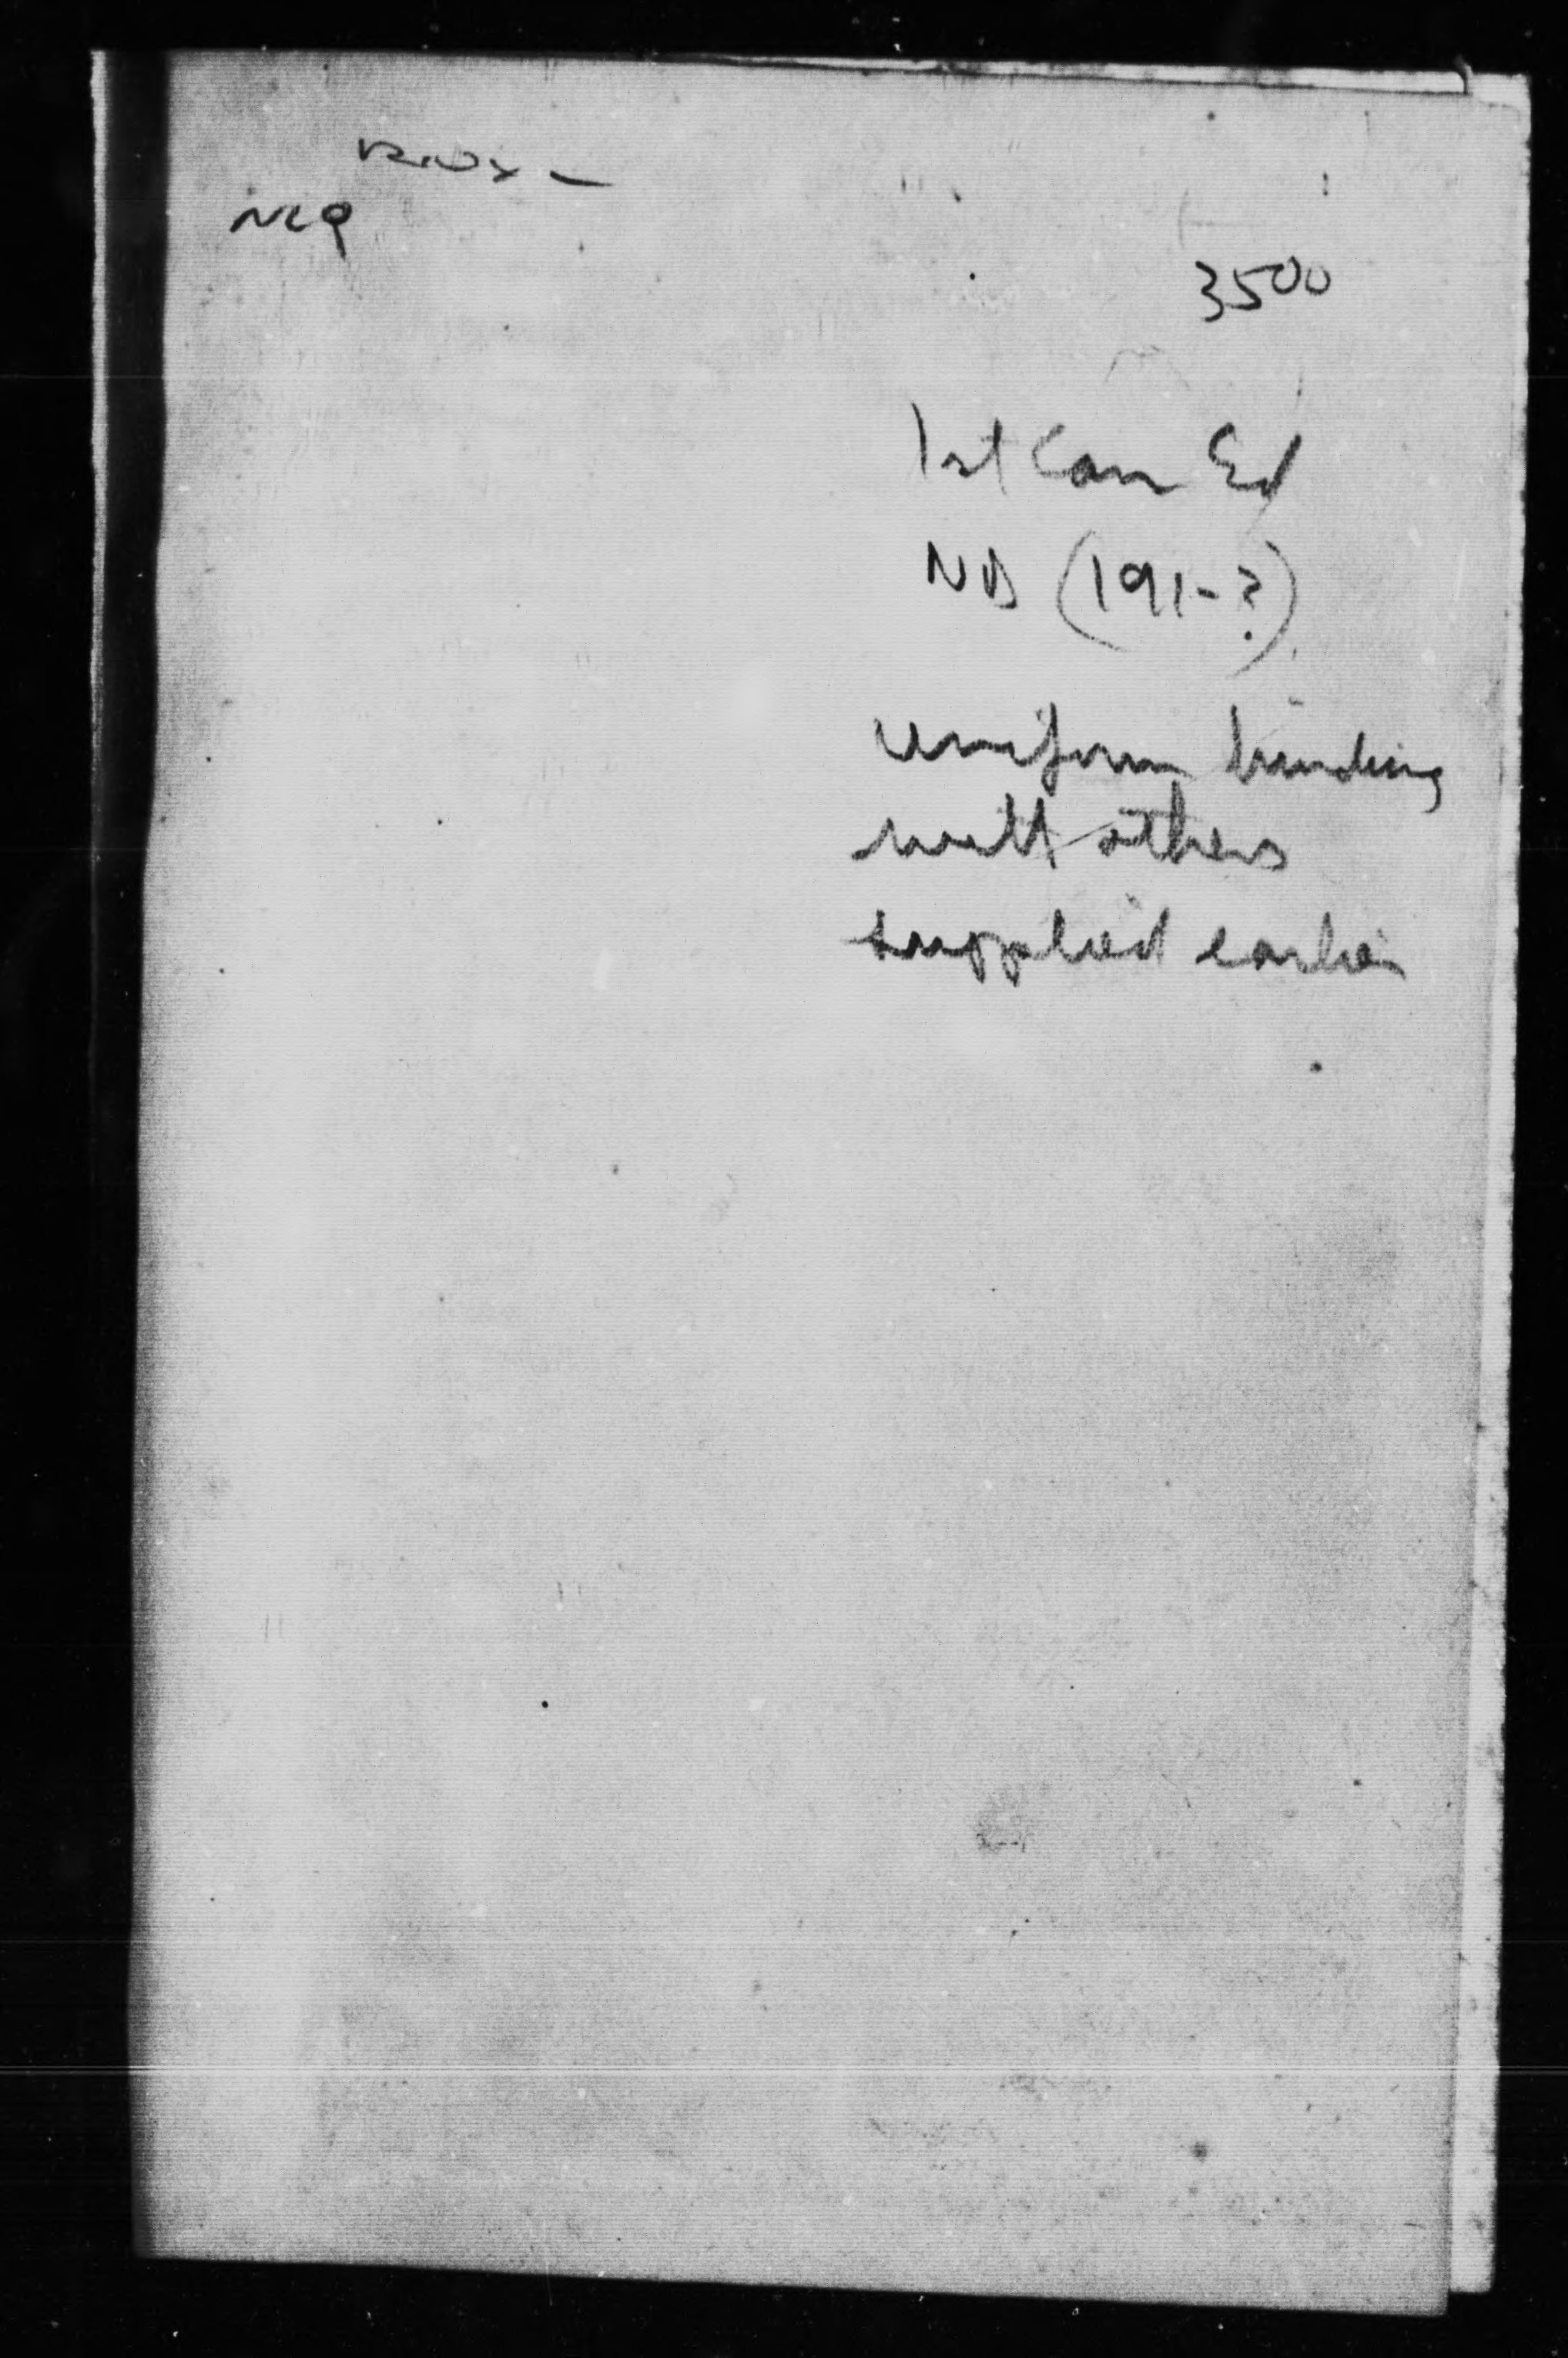 3500
1st Can Ed
ND (191-?)
uniform binding
with others
supplied earlier